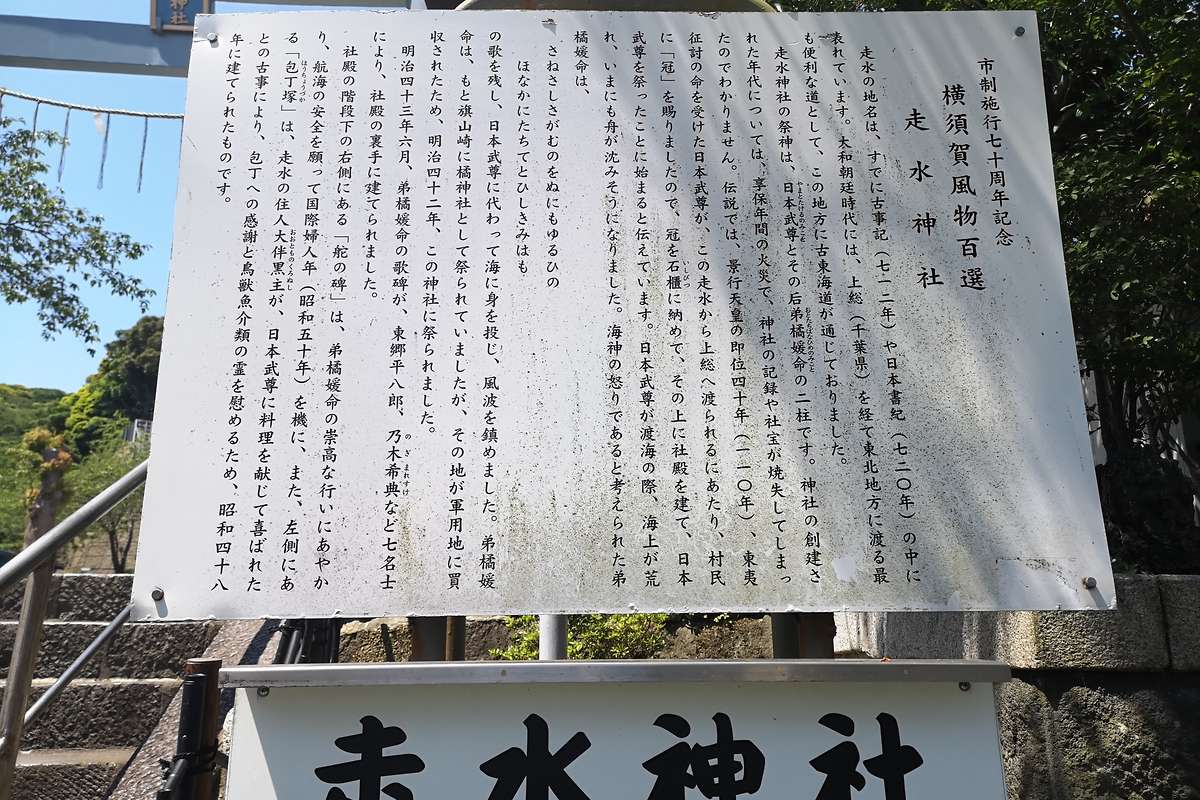 市制施行七十周年記念
横須賀風物百選
走水神社
走水の地名は、すでに古事記（七一二年）や日本書紀（七二〇年）の中に
表れています。大和朝廷時代には、上総（千葉県）を経て東北地方に渡る最
も便利な道として、この地方に古東海道が通じておりました。
走水神社の祭神は、日本武尊とその后弟橘媛命の二柱です。神社の創建さ
れた年代については、享保年間の火災で、神社の記録や社宝が焼失してしまっ
たのでわかりません。伝説では、景行天皇の即位四十年（一一〇年）、東夷
征討の命を受けた日本武尊が、この走水から上総へ渡られるにあたり、村民
に「冠」を賜りましたので、冠を石櫃に納めて、その上に社殿を建て、日本
武尊を祭ったことに始まると伝えています。日本武尊が渡海の際、海上が荒
れ、いまにも舟が沈みそうになりました。海神の怒りであると考えられた弟
橘媛命は、
さねさしさがむのをぬにもゆるひの
ほなかにたちてとひしきみはも
の歌を残し、日本武尊に代わって海に身を投じ、風波を鎮めました。弟橘媛
命は、もと旗山崎に橘神社として祭られていましたが、その地が軍用地に買
収されたため、明治四十二年、この神社に祭られました。
明治四十三年六月、弟橘媛命の歌碑が、東郷平八郎、乃木希典など七名士
により、社殿の裏手に建てられました。
社殿の階段下の右側にある「舵の碑」は、弟橘媛命の崇高な行いにあやか
り、航海の安全を願って国際婦人年（昭和五十年）を機に、また、左側にあ
る「包丁塚」は、走水の住人大伴黒主が、日本武尊に料理を献じて喜ばれた
との古事により、包丁への感謝と鳥獣魚介類の霊を慰めるため、昭和四十八
年に建てられたものです。
走水神社
神社